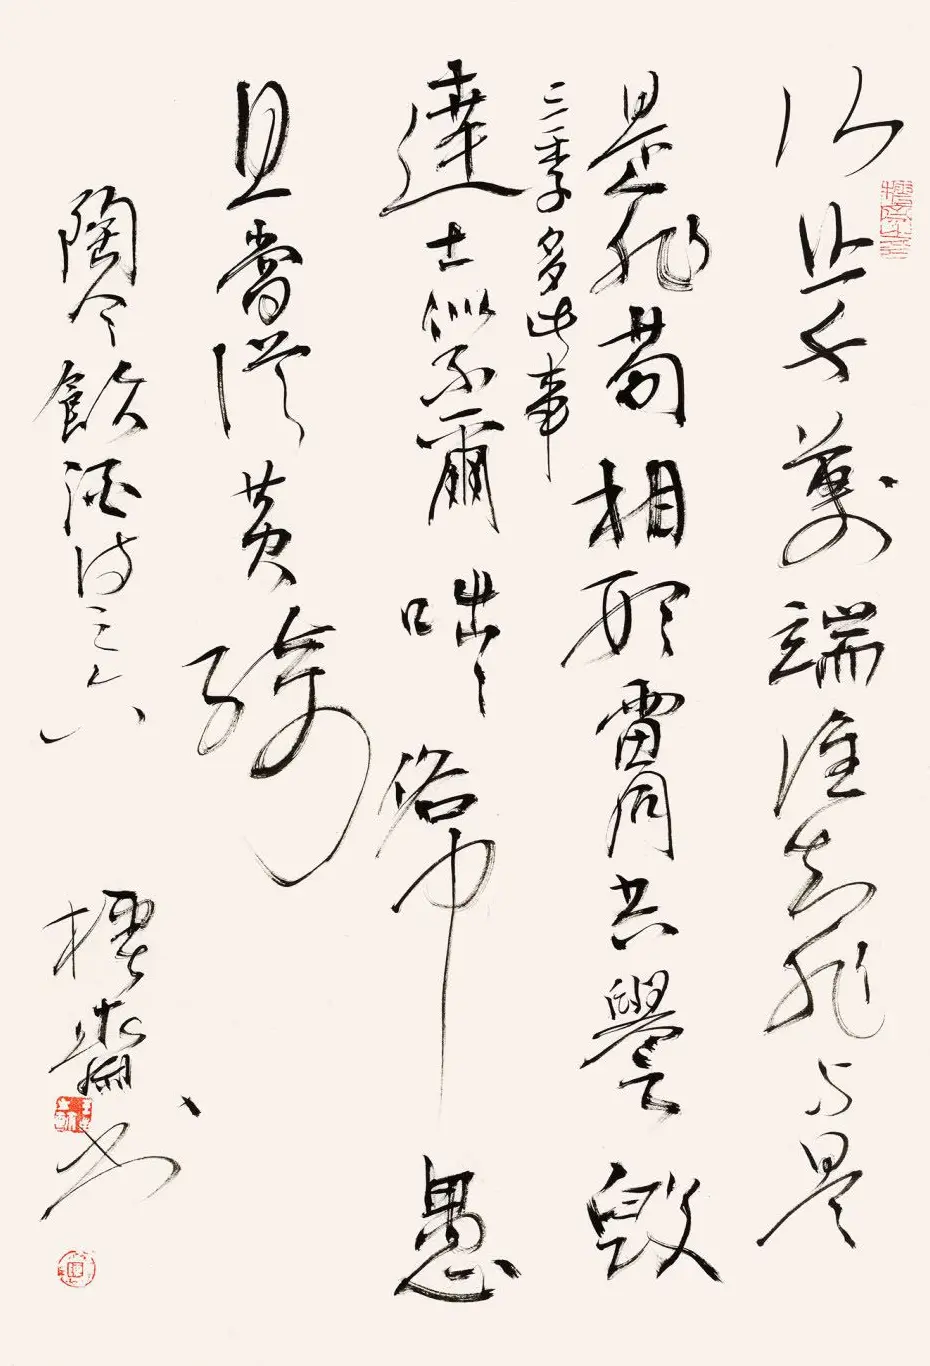 行止千萬端誰知非与是
是非苟相形雷同共譽毀
三季多此事
達士似不爾咄〻俗中愚
且當從黃綺
陶令飲酒詩之六
齋书